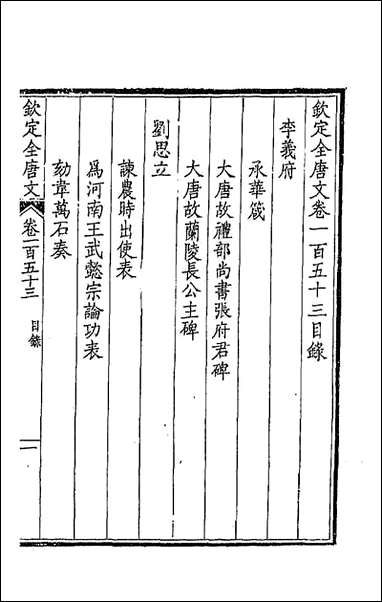 欽定全唐文卷一百五十三目錄
李義府
承華箴
大唐故禮部尚書張府君碑
大唐故蘭陵長公主碑
劉思立
諫農時出使表
爲河南王武懿宗論功表
劾韋萬石奏
欽定全唐文
卷一百五十三
目錄
一